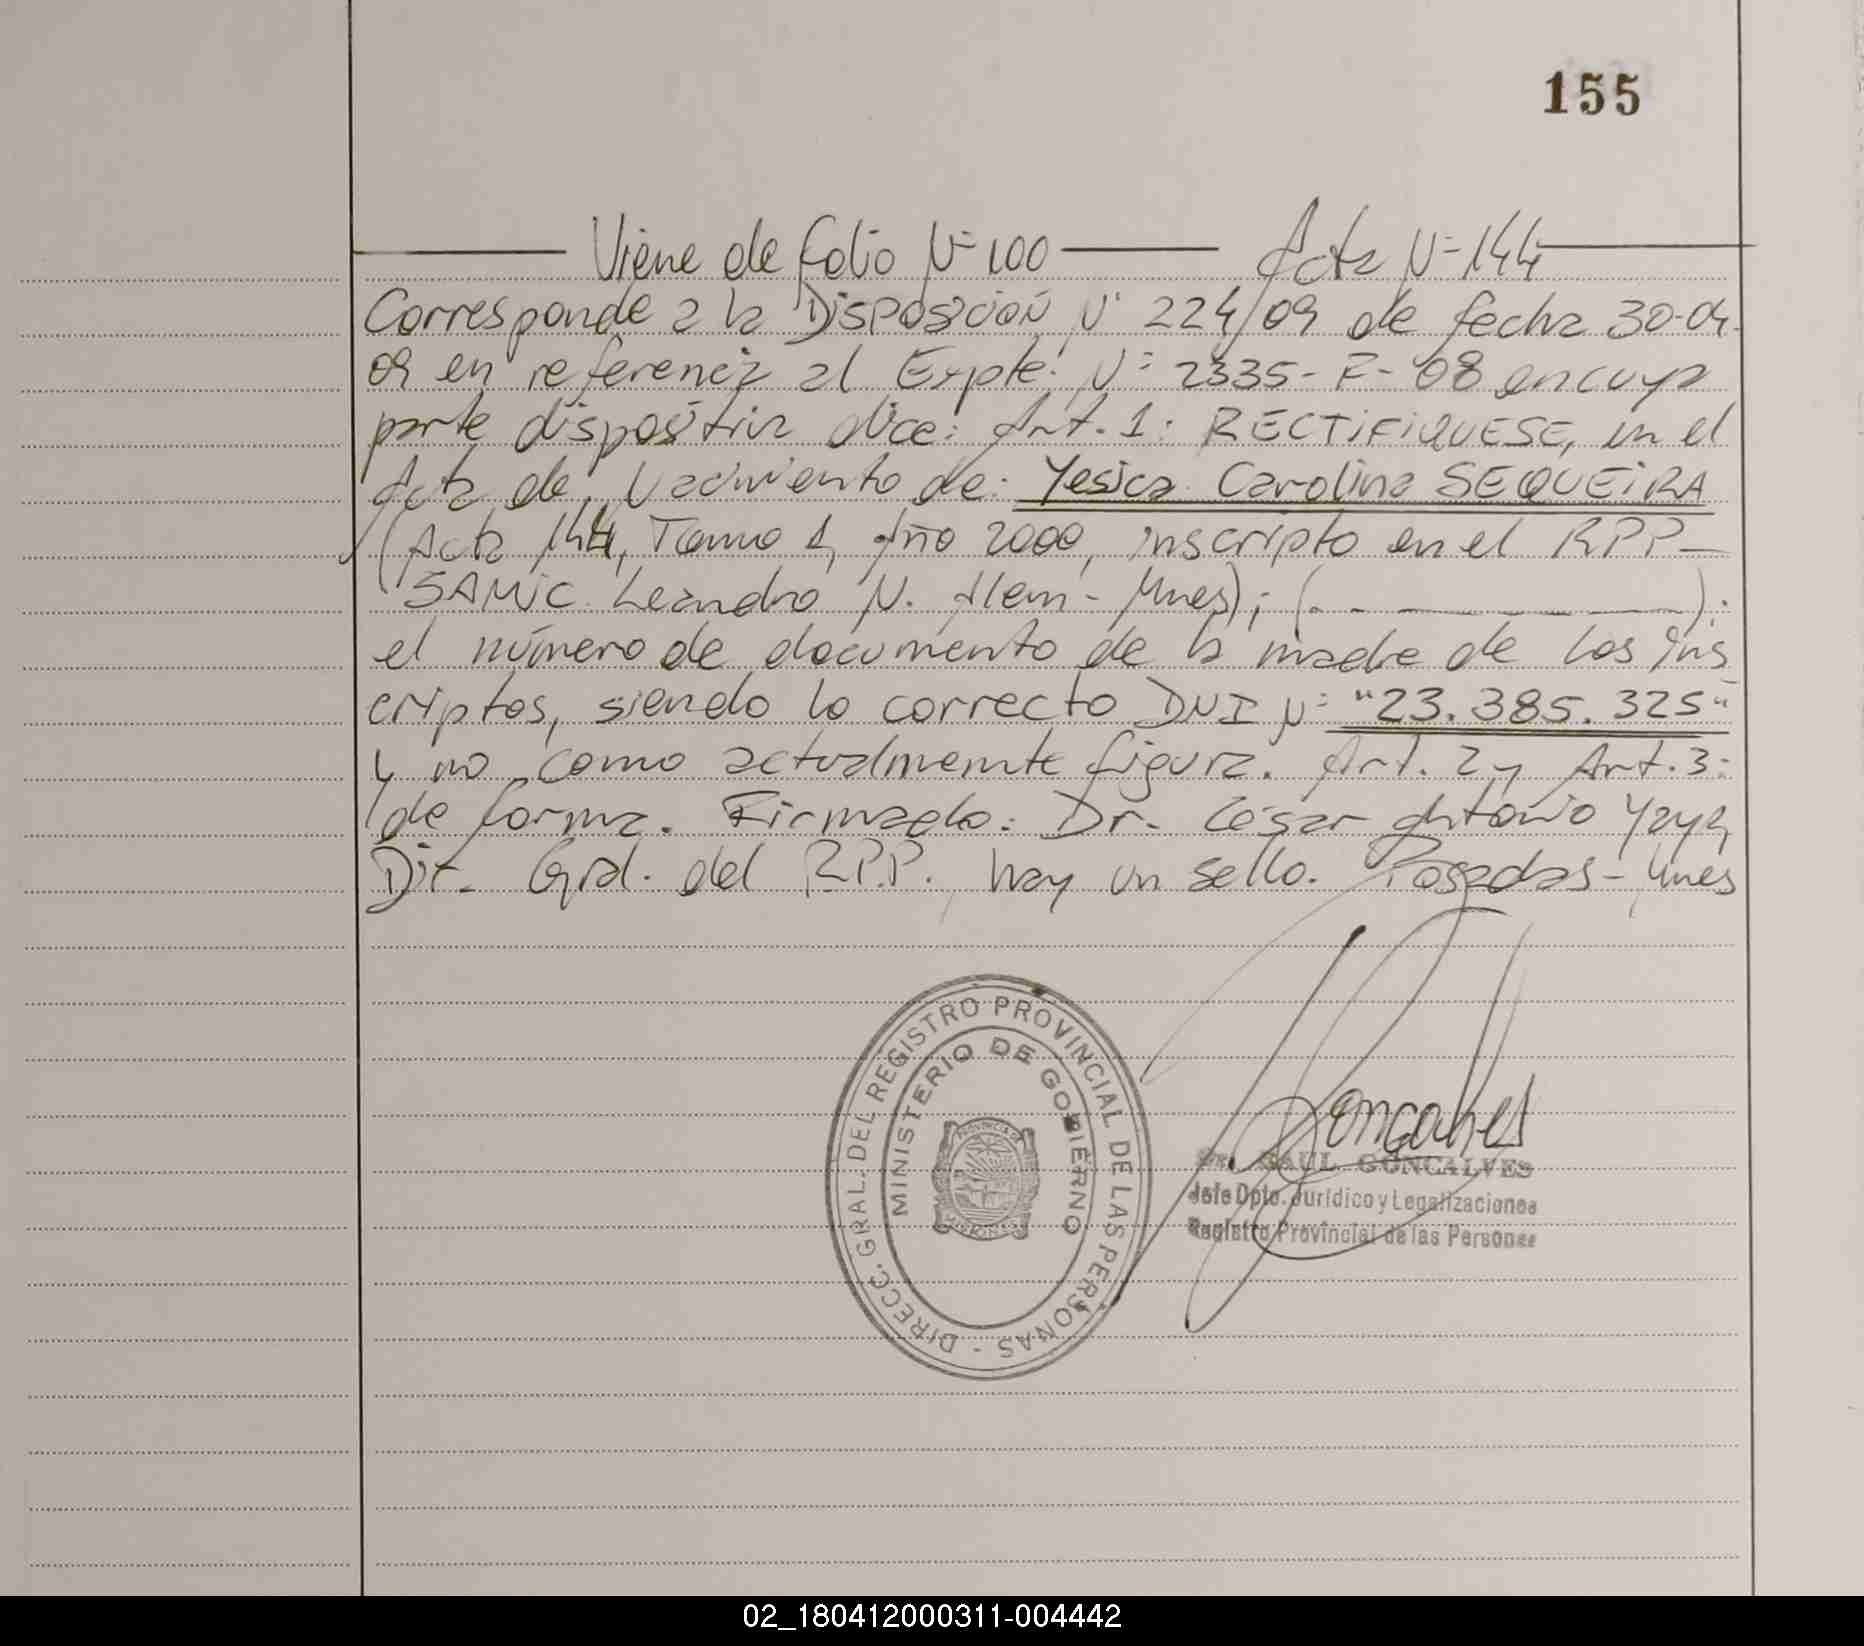 155
Viene de folio Nº 100 Acta Nº 144
Corresponde a la Disposición Nº 224/09 de fecha 30-04-
09 en referencia al Expte. Nº 2335-F-08 en cuya
parte dispositiva dice: Art. 1: RECTIFIQUESE, en el
Acta de Nacimiento de: Yesica Carolina SEQUEIRA
(Acta 144, Tomo 1, Año 2000, inscripto en el RPP-
SAMIC Leandro N. Alem - Mnes); (. - — — — —);
el número de documento de la madre de los ins
criptos, siendo lo correcto DNI Nº "23.385.325"
y no como actualmente figura. Art. 2 y Art. 3:
de forma. Firmado: Dr. César Antonio Yaya,
Dir. Gral. del R.P.P. hay un sello. Posadas - Mnes
DIRECC. GRAL. DEL REGISTRO PROVINCIAL DE LAS PERSONAS -
MINISTERIO DE GOBIERNO
PROVINCIA DE
MISIONES
Goncalves
Dr. SAUL GONCALVES
Jefe Dpto. Jurídico y Legalizaciones
Registro Provincial de las Personas
02_180412000311-004442